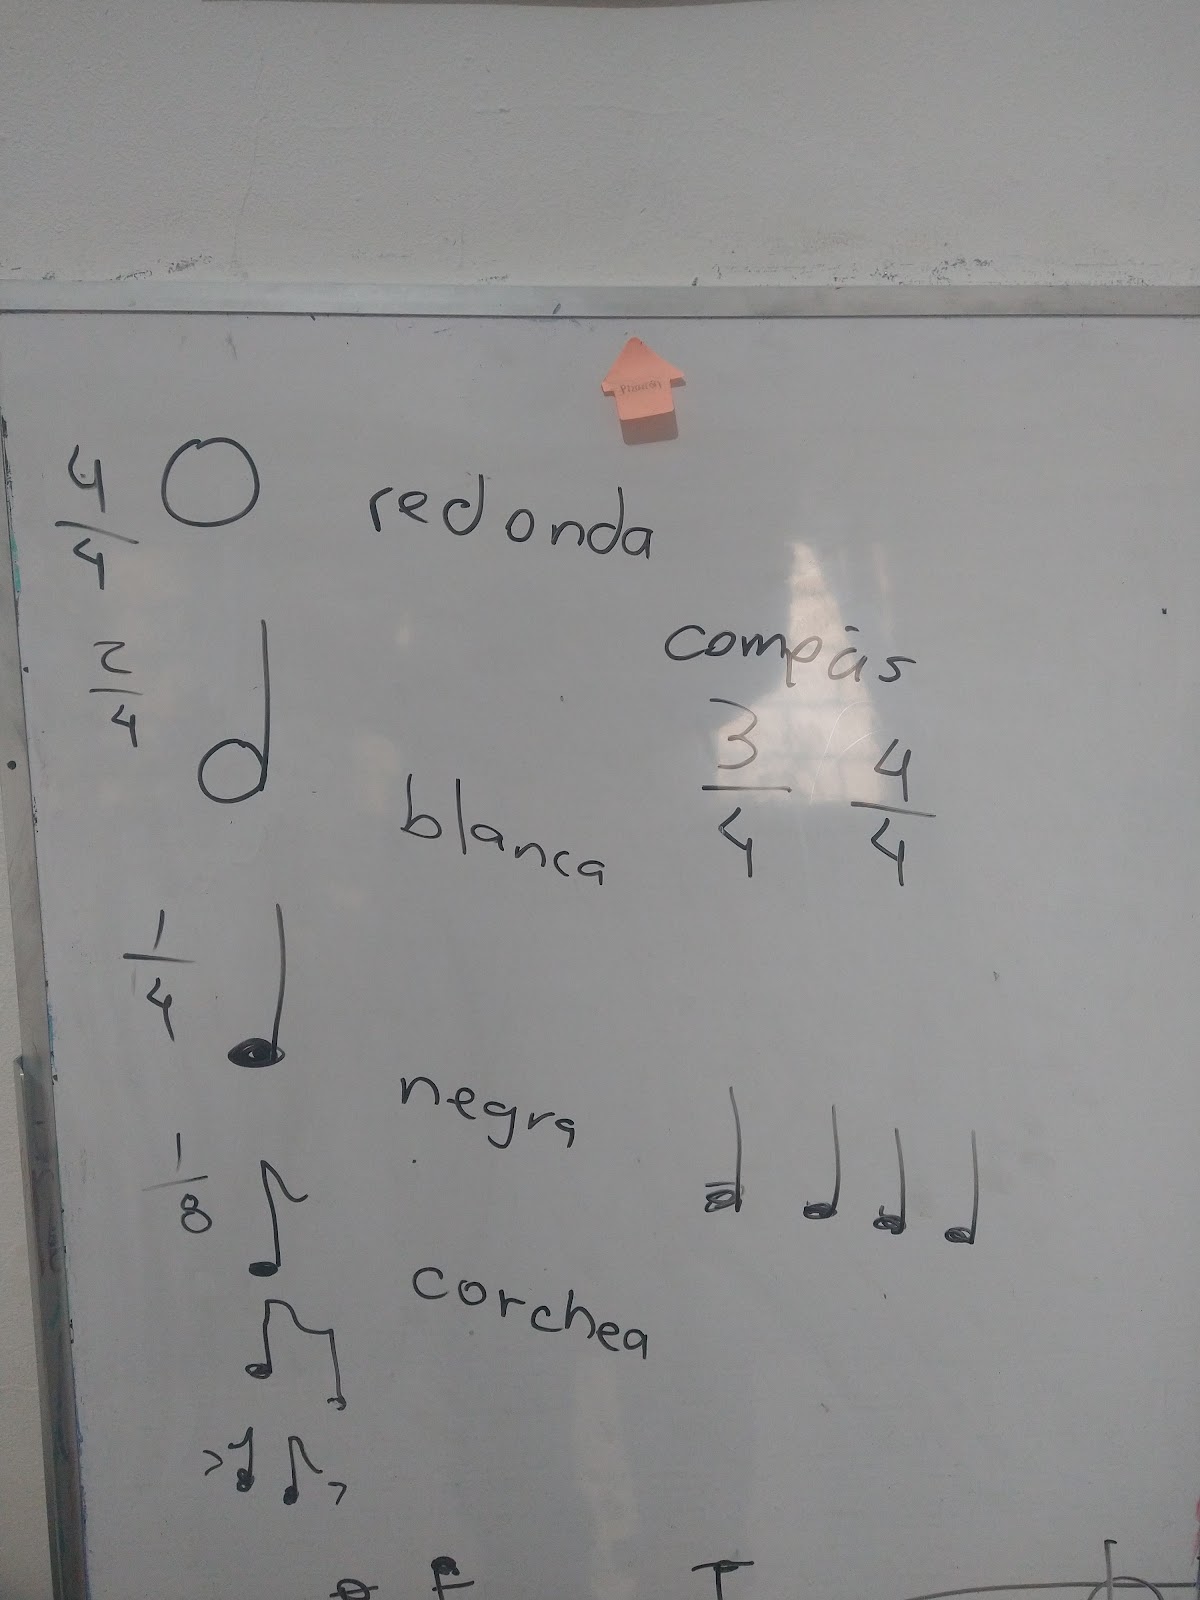 4/4 redonda
2/4
compás
3/4 4/4
blanca
1/4
negra
1/8
corchea